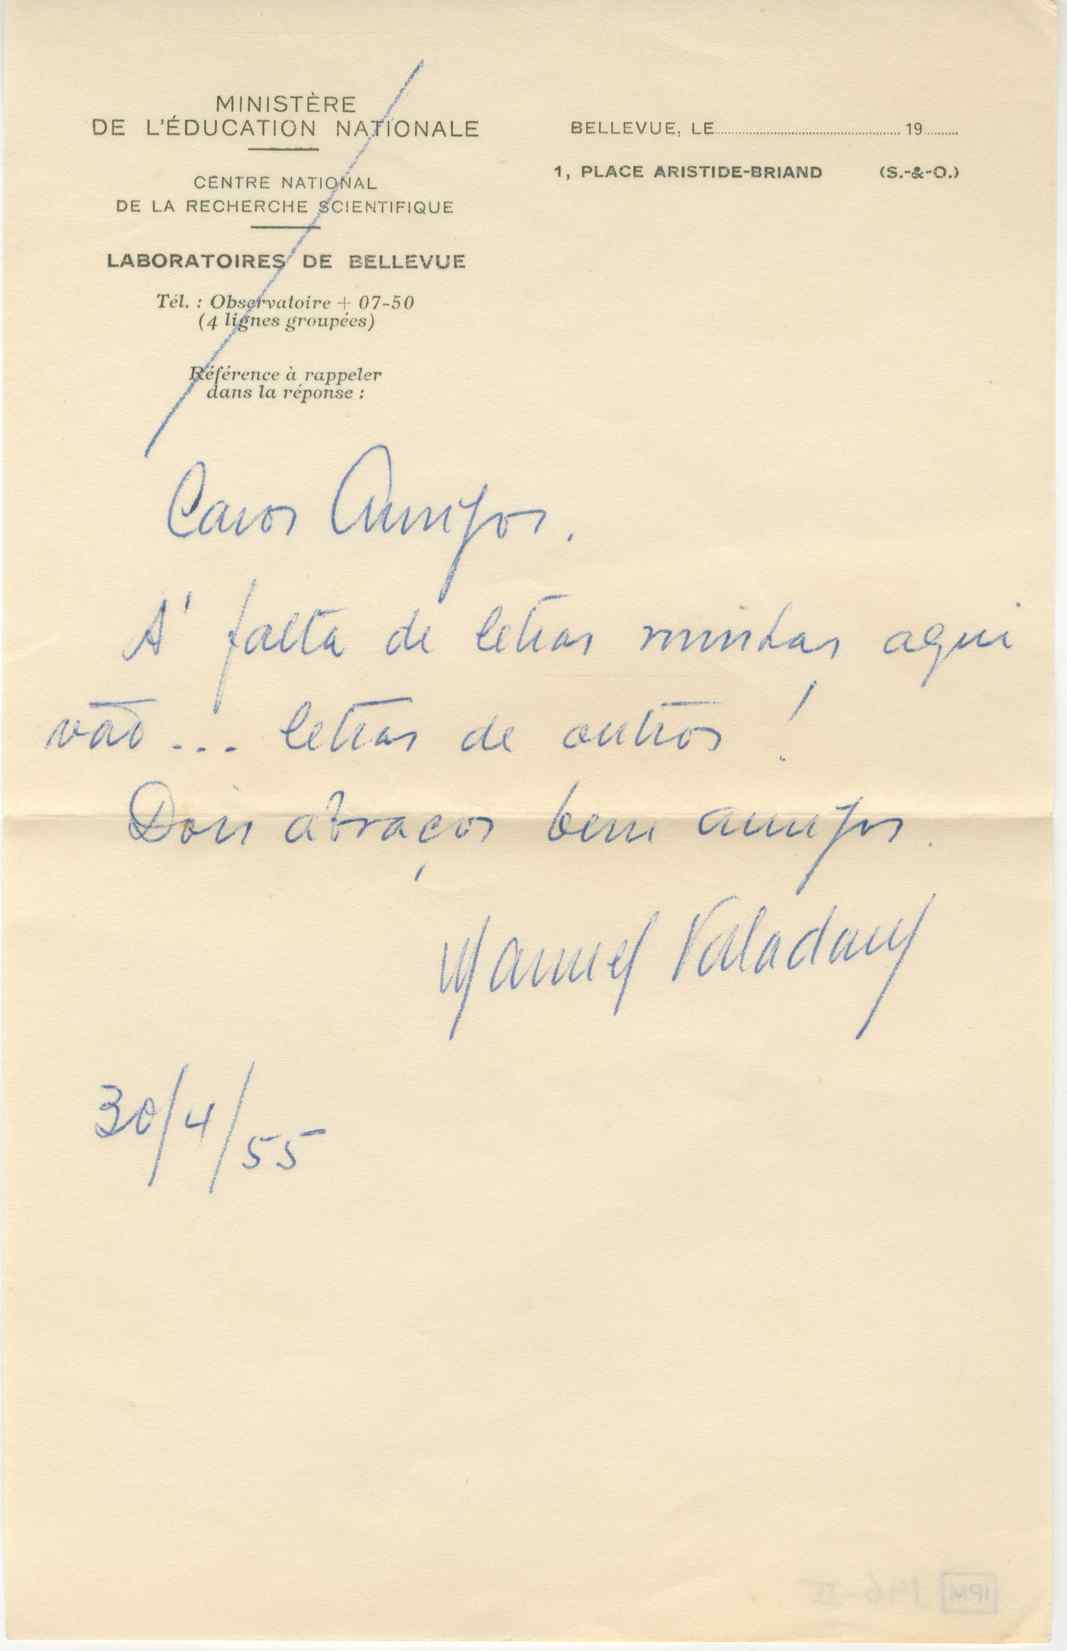 MINISTÈRE
DE L'ÉDUCATION NATIONALE
CENTRE NATIONAL
DE LA RECHERCHE SCIENTIFIQUE
LABORATOIRES DE BELLEVUE
Tél. : Observatoire + 07-50
(4 lignes groupées)
Référence à rappeler
dans la réponse :
BELLEVUE, LE 19
1, PLACE ARISTIDE-BRIAND (S.-&-O.)
Caros Amigos.
A' falta de letras minhas aqui
vão ... letras de outros !
Dois abraços bem amigos.
Manuel Valadares
30/4/55
IPM 196-II